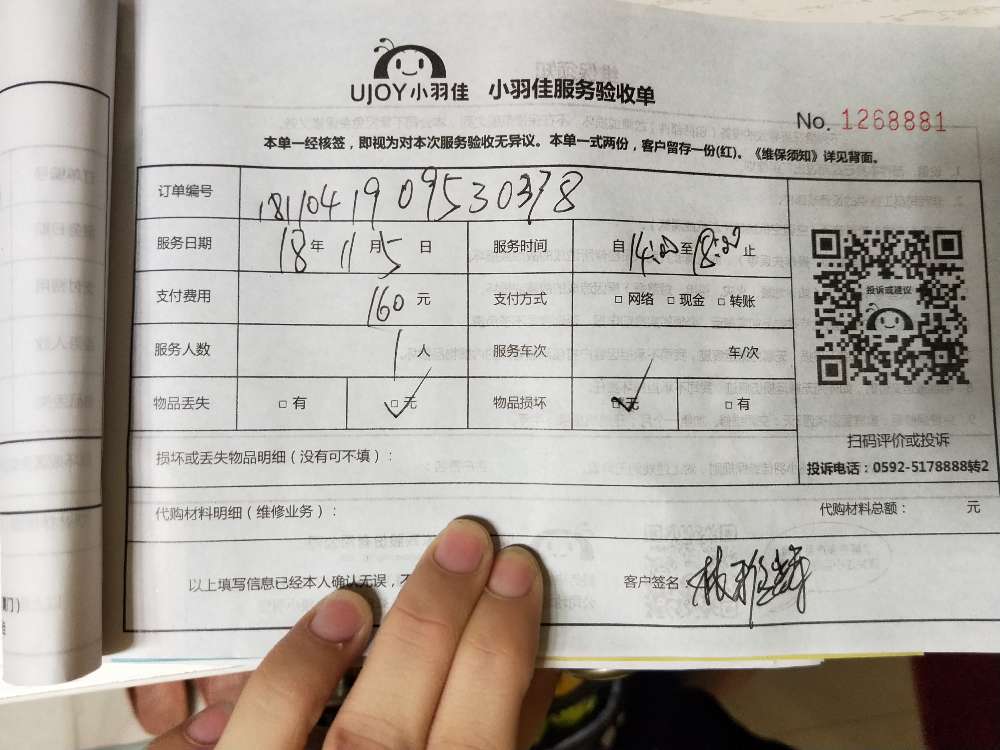 UJOY小羽佳 小羽佳服务验收单
No. 1268881
本单一经核签，即视为对本次服务验收无异议。本单一式两份，客户留存一份(红)。《维保须知》详见背面。
订单编号 1811041909530378
服务日期 18年11月5日 服务时间 自14:00至18:00止
支付费用 160元 支付方式 □网络 □现金 □转账
投诉或建议
服务人数 1人 服务车次 车/次
物品丢失 □有 □无 物品损坏 □无 □有
扫码评价或投诉
损坏或丢失物品明细（没有可不填）：
投诉电话：0592-5178888转2
代购材料明细（维修业务）： 代购材料总额： 元
以上填写信息已经本人确认无误，不 客户签名：